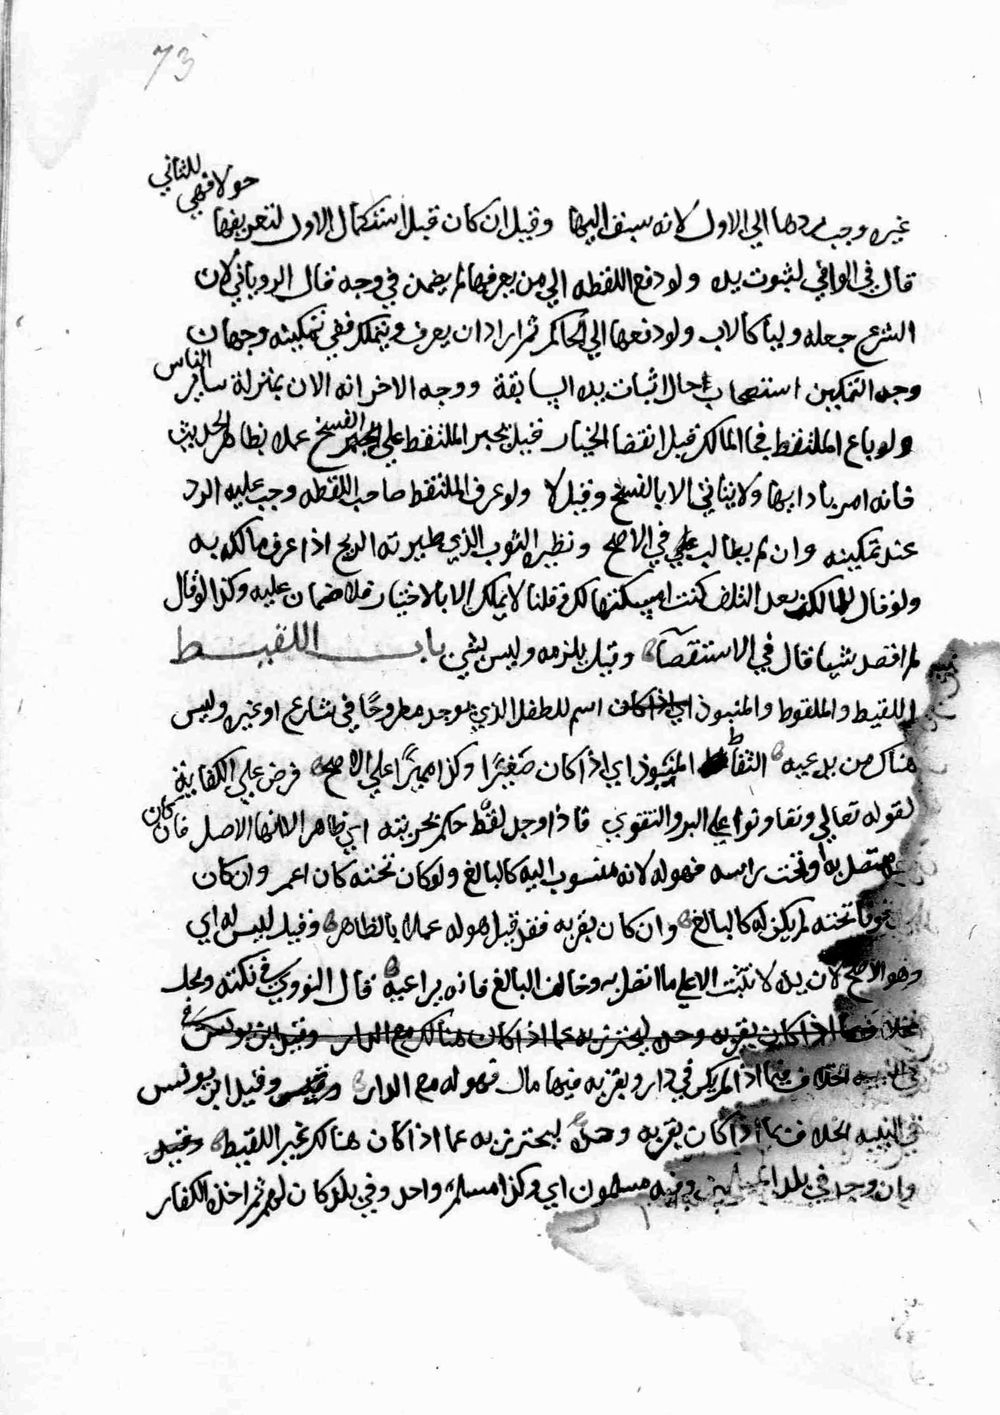 73
غيره وجب ردها الي الاول لانه سبق اليها وقيل ان كان قبل استكمال الاول لتعريفها
حولا فهي للثاني
قال في الوافي لثبوت يده ولو دفع اللقطه الي من يعرفها لم يضمن في وجه قال الروياني لان
الشرع جعله وليا كالاب ولو دفعها الي الحاكم ثم اراد ان يعرف ويتملك ففي تمكينه وجهان
وجه التمكين استصحاب حال اثبات يده السابقة ووجه الاخر انه الان بمنزلة ساير الناس
ولو باع الملتقط فجا المالك قبل انقضا الخيار قيل يجبر الملتقط علي الفسخ عملا بظاهر الحديث
فانه امر بادايها ولا يتاتي الا بالفسخ وقيل لا ولو عرف الملتقط صاحب اللقطه وجب عليه الرد
عند تمكينه وان لم يطالب علي في الاصح ونظيره الثوب الذي طيرته الريح اذا عرف مالكه به
ولو قال للمالك بعد التلف كنت امسكتها لك وقلنا لا يملك الا بالاختيار فلا ضمان عليه وكذا لو قال
لم اقصد شيا قال في الاستقصآ وقيل يلزمه وليس بشي باب اللقيط
اللقيط والملقوط والمنبوذ اسم للطفل الذي يوجد مطروحًا في شارع او غيره وليس
هناك من يدعيه التقاط المنبوذ اي اذا كان صغيرا وكذا مميزًا علي الاصح فرض علي الكفاية
لقوله تعالي وتعاونوا علي البر والتقوي فاذا وجد لقيط حكم بحريته اي ظاهرا لانها الاصل فان كان
متصل به او تحت راسه فهو له لانه منسوب اليه كالبالغ ولو كان تحته كان اعمر وان كان
مدفونا تحته لم يكن له كالبالغ وان كان بقربه فقد قيل هو له عملا بالظاهر وقيل ليس له اي
وهو الاصح لان يده لا تثبت الا علي ما اتصل به وخالف البالغ فانه يراعيه قال النووي في نكته ومحل
الخلاف فيما اذا كان بقربه وحده ليحترز به عما اذا كان هنالك مع الدار وقيل ابن يونس في
التنبيه الخلاف فيما اذا لم يكن في دار وبقربه فيها مال فهو له مع الدار وقيل ابن يونس
في التنبيه الخلاف فيما اذا كان بقربه وحده ليحترز به عما اذا كان هناك غير اللقيط وقيل
وان وجد في بلد المسلمين وفيه مسلمون اي وكذا مسلم واحد وفي بلد كان لهم ثم اخذه الكفار